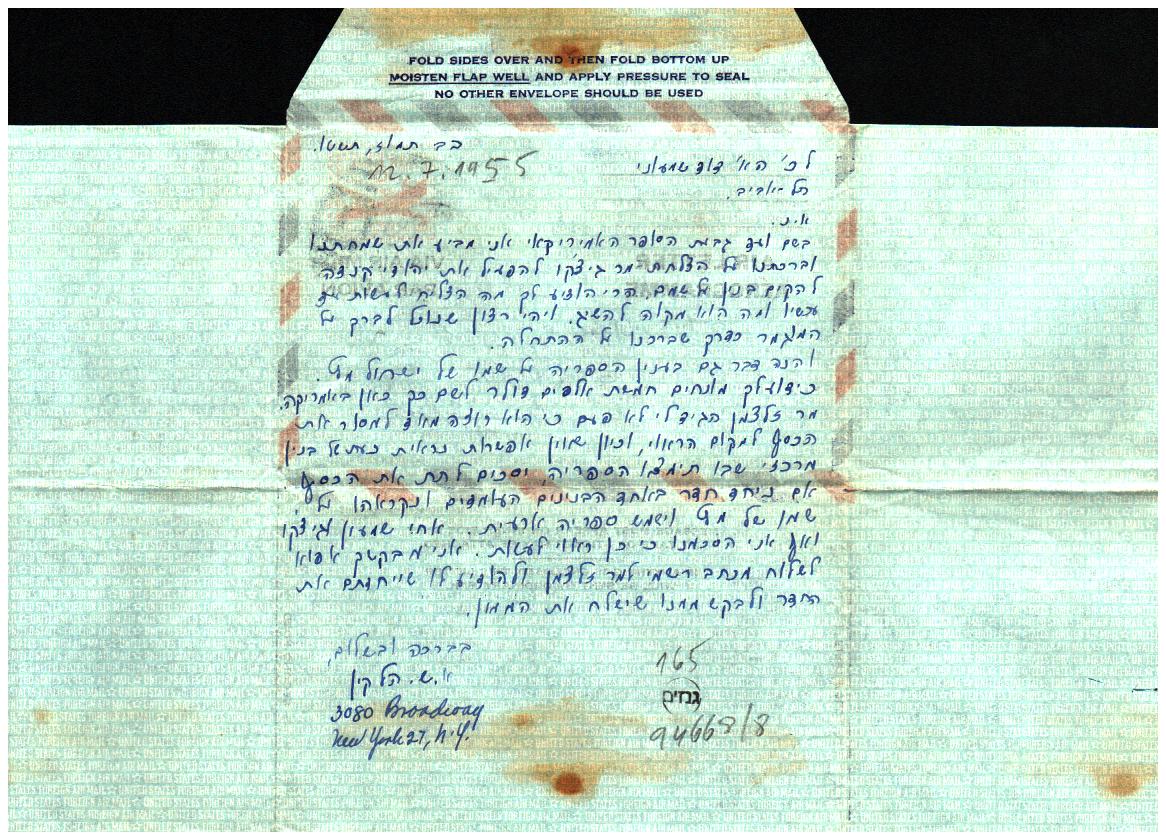 FOLD SIDES OVER AND THEN FOLD BOTTOM UP
MOISTEN FLAP WELL AND APPLY PRESSURE TO SEAL
NO OTHER ENVELOPE SHOULD BE USED
כב תמוז, תשטו.
12.7.1955
לכ' הא' דוד שמעוני
תל-אביב.
א.נ.
בשם ועד גבות הסופר האמיריקאי אני מביע את שמחתנו
וברכתנו על הצלחת מר גיצקו להפעיל את יהודי קנדה
להקים בנין על שמם. הרי הודיע לך מה הצליח לעשות עד
עכשיו ומה הוא מקוה להשיג. ויהי רצון שנוכל לברך על
המוגמר כדרך שברכנו על ההתחלה.
והנה דבר גם בענין הספריה על שמו של ישראל מץ.
כידוע לך מונחים חמשת אלפים דולר לשם כך כאן באמריקה.
מר זלצמן הגיד לי לא פעם כי הוא רוצה מאד למסור את
הכסף למקום הראוי, וכיון שאין אפשרות נראית כעת של בנין
מרכזי שבו תימצא הספריה, יסכים לתת את הכסף
אם נייחד חדר באחד הבנינים העומדים ונקראהו על
שמו של מץ וישמש ספריה ארעית. אחי שמעון וגיצקו
ואף אני הסכמנו כי כן ראוי לעשות. אני מבקשך אפוא
לשלוח מכתב רשמי למר זלצמן ולהודיע לו שייחדתם את
החדר ולבקש ממנו שישלח את הממון.
בברכה ובשלום,
א.ש. הלקין
3080 Broadway
New York 27, N.Y.
165
גנזים
94668/8